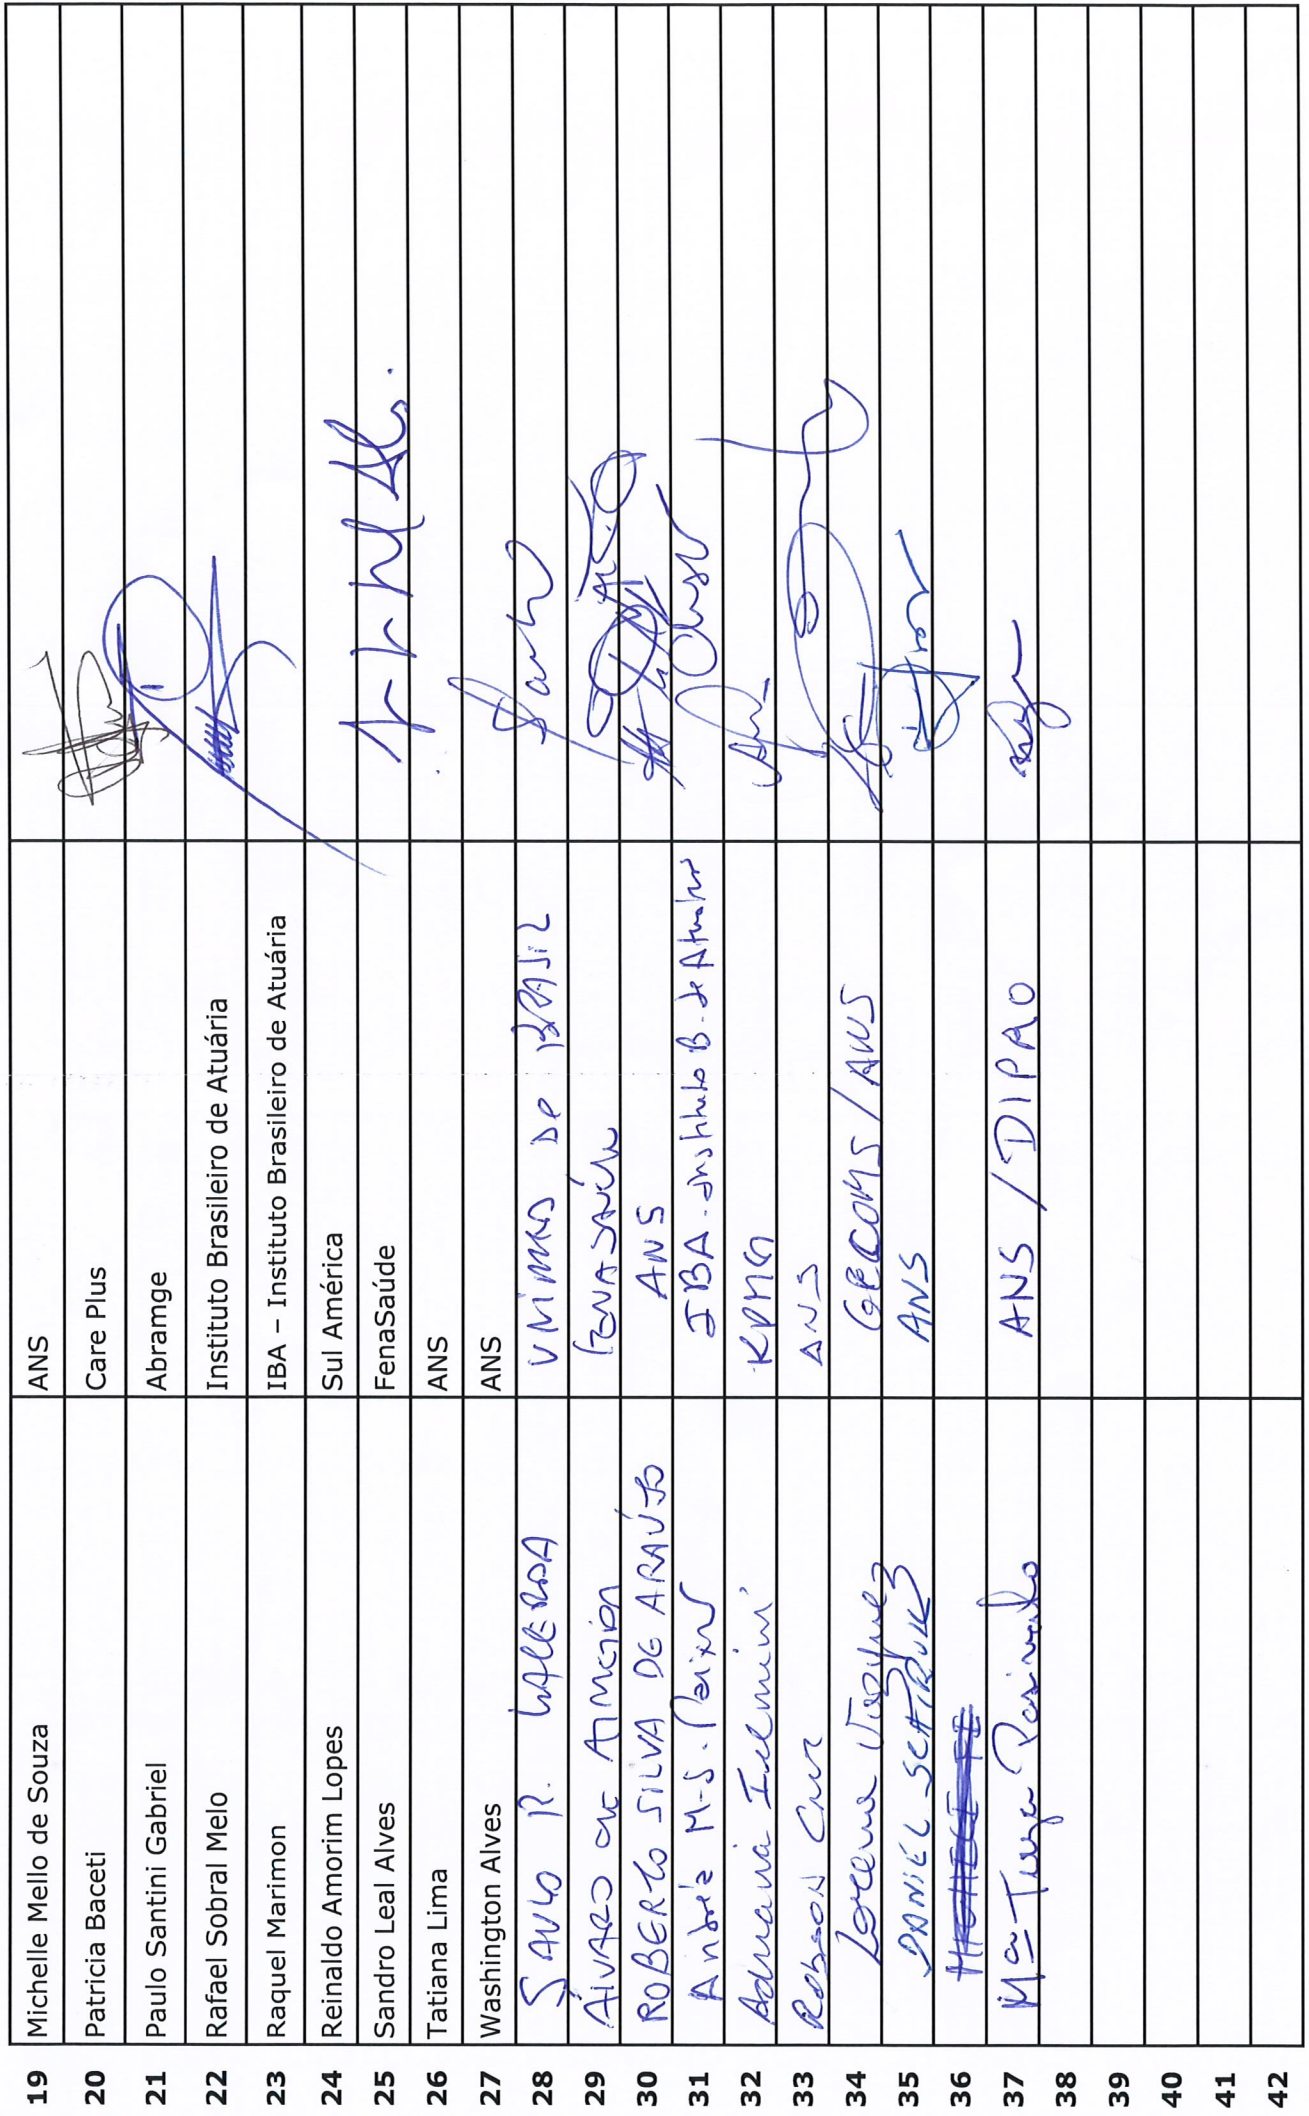 19 Michelle Mello de Souza ANS
20 Patricia Baceti Care Plus
21 Paulo Santini Gabriel Abramge
22 Rafael Sobral Melo Instituto Brasileiro de Atuária
23 Raquel Marimon IBA – Instituto Brasileiro de Atuária
24 Reinaldo Amorim Lopes Sul América
25 Sandro Leal Alves FenaSaúde
26 Tatiana Lima ANS
27 Washington Alves ANS
28 SAULO R. LACERDA UNIMED DO BRASIL
29 ÁLVARO DE FENASAÚDE
30 ROBERTO SILVA DE ARAÚJO ANS
31 André M.S. IBA - Instituto B. de
32 Adriana KPMG
33 Robson Cruz ANS
34 Lorena /ANS
35 DANIEL ANS
36
37 Mª ANS / DIPRO
38
39
40
41
42